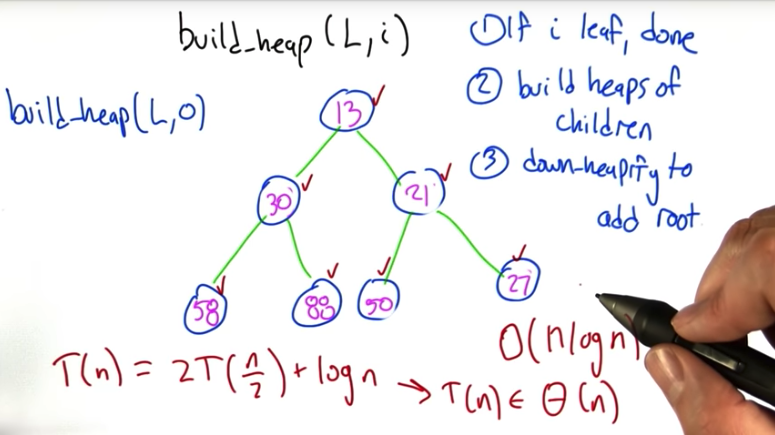 build_heap (L,i)
① If i leaf, done
② build heaps of
children
③ down-heapify to
add root
build_heap(L,0)
13
30
21
58
88
50
27
T(n) = 2T(n/2) + log n → T(n) ∈ Θ(n)
O(n log n)